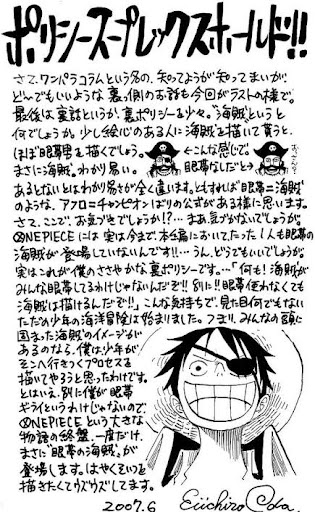 ポリシースープレックスホールド!!
さて、ワンパラコラムという名の、知ってようが知ってまいが、
ど〜でもいいような裏側のお話も今回がラストの様で。
最後は裏話というか、裏ポリシーを少々。“海賊”というと
何でしょうか。少し絵心のある人に海賊を描いて貰うと、
ほぼ眼帯男を描くでしょう。
←こんな感じで。
まさに海賊。わかり易い。
眼帯なしだと→
あるとないとはわかり易さが全く違います。ともすれば眼帯=海賊
のような、アフロ=チャンピオンばりの公式がある様に思います。
さて、ここで、お気づきでしょうか!?…まあ、気づかないでしょうが。
ONE PIECEには実は今まで、本編において、たった1人も眼帯の
海賊が登場していないんです!!…うん、どうでもいいでしょうが
実はこれが僕のささやかな裏ポリシーです。…「何も!海賊が
みんな眼帯してるわけじゃないんだぞ!!別に!!眼帯使わなくても
海賊は描けるんだぞ!!」こんな気持ちで、見た目何でもない
ただの少年の海洋冒険は始まりました。つまり、みんなの頭に
固まった“海賊”のイメージが
あるのなら、僕は少年が、
そこへ行きつくプロセスを
描いてやろうと思ったわけです。
とはいえ、別に僕が眼帯
キライというわけじゃないので、
ONE PIECEという大きな
物語の終盤、一度だけ、
まさに“眼帯の海賊”が、
登場します。はやくそいつを
描きたくてウズウズしてます。
2007.6 Eiichiro Oda.